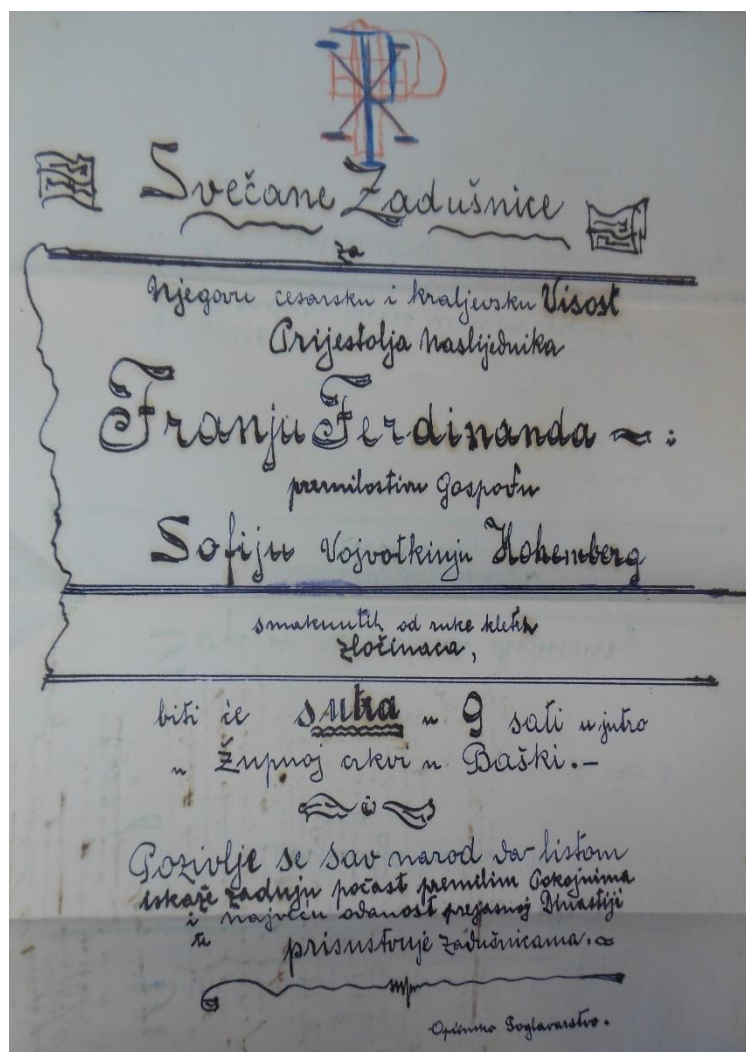 Svečane Zadušnice
za
Njegovu cesarsku i kraljevsku Visost
Prijestolja Naslijednika
Franju Ferdinanda
premilostivu Gospođu
Sofiju Vojvotkinju Hohemberg
smaknutih od ruke kletih
Zločinaca,
biti će sutra u 9 sati u jutro
u Župnoj crkvi u Baški.-
Pozivlje se sav narod da listom
iskaže zadnju počast premilim Pokojnima
i najveću odanost prejasnoj Dinastiji
te
prisustvuje Zadušnicama.
Općinsko Poglavarstvo.